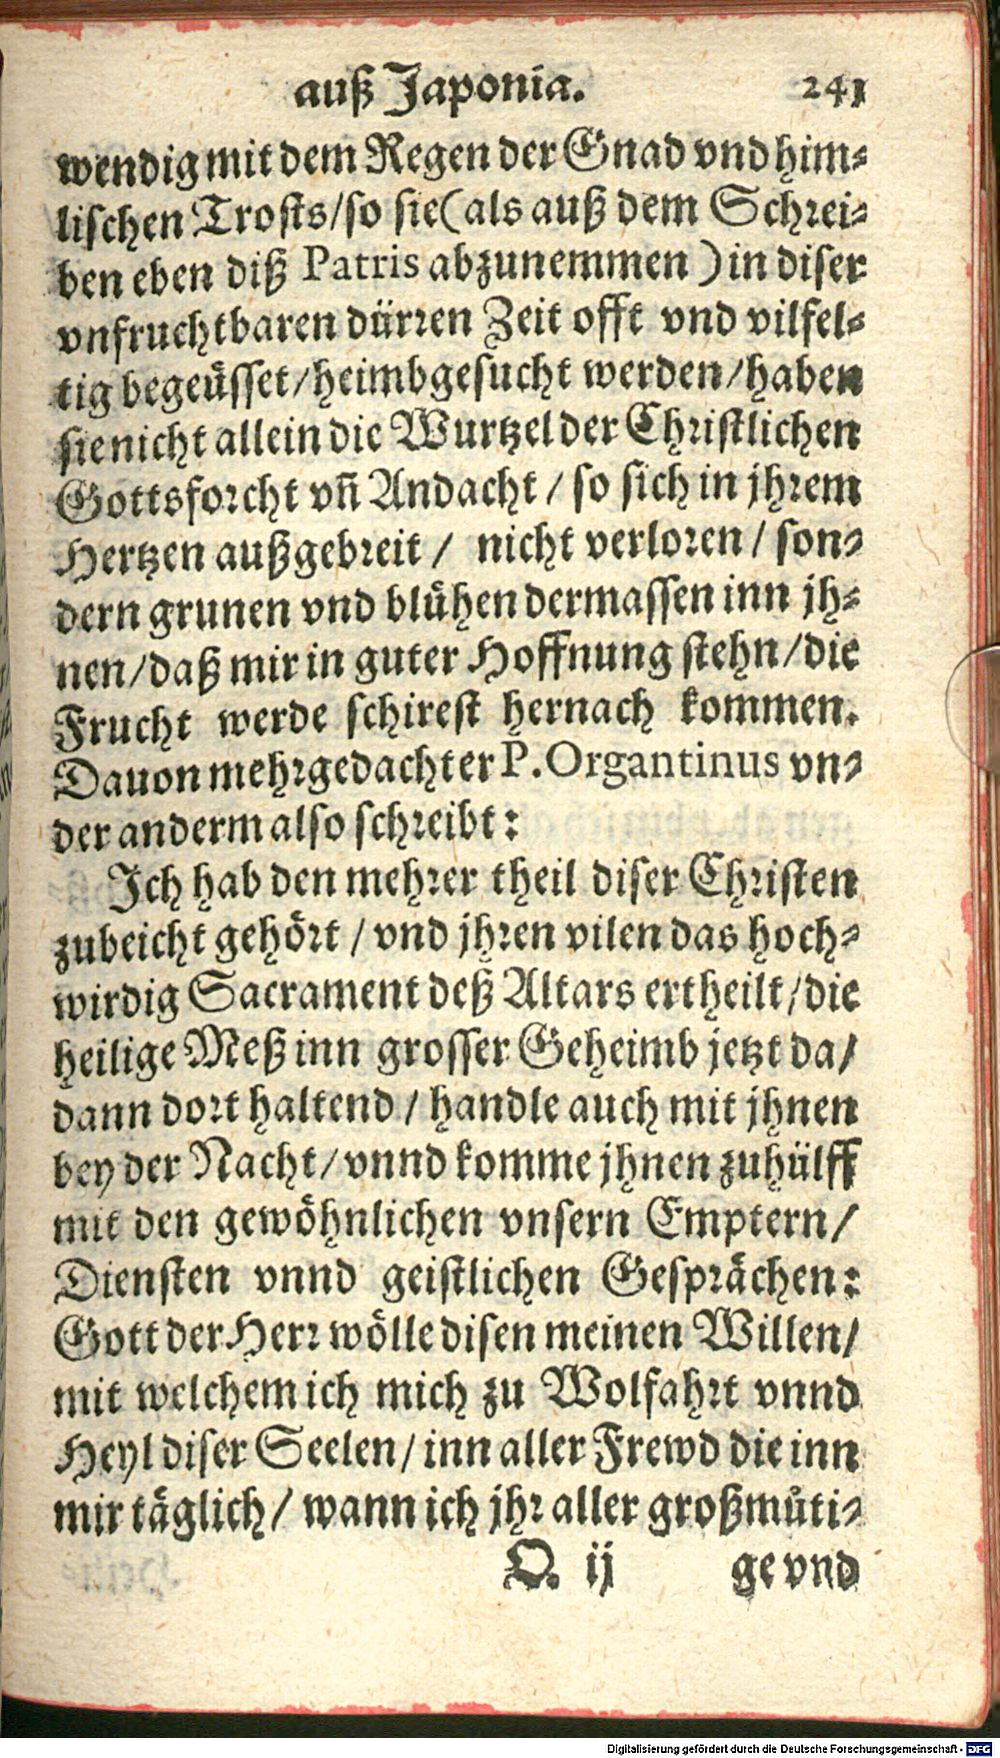 auß Japonia. 241
wendig mit dem Regen der Gnad vnd him⸗
lischen Trosts/so sie(als auß dem Schrei⸗
ben eben diß Patris abzunemmen) in diser
vnfruchtbaren dürren Zeit offt vnd vilfel⸗
tig begeüsset/heimbgesucht werden/haben
sie nicht allein die Wurtzel der Christlichen
Gottsforcht vñ Andacht / so sich in jhrem
Hertzen außgebreit / nicht verloren / son⸗
dern grunen vnd blühen dermassen inn jh⸗
nen/daß mir in guter Hoffnung stehn/die
Frucht werde schirest hernach kommen.
Dauon mehrgedachter P. Organtinus vn⸗
der anderm also schreibt:
Ich hab den mehrer theil diser Christen
zubeicht gehört / vnd jhren vilen das hoch⸗
wirdig Sacrament deß Altars ertheilt/die
heilige Meß inn grosser Geheimb jetzt da/
dann dort haltend / handle auch mit jhnen
bey der Nacht/vnnd komme jhnen zuhülff
mit den gewöhnlichen vnsern Emptern/
Diensten vnnd geistlichen Gesprächen:
Gott der Herr wölle disen meinen Willen/
mit welchem ich mich zu Wolfahrt vnnd
Heyl diser Seelen/inn aller Frewd die inn
mir täglich/ wann ich jhr aller großmüti⸗
Q ij ge vnd
Digitalisierung gefördert durch die Deutsche Forschungsgemeinschaft - DFG